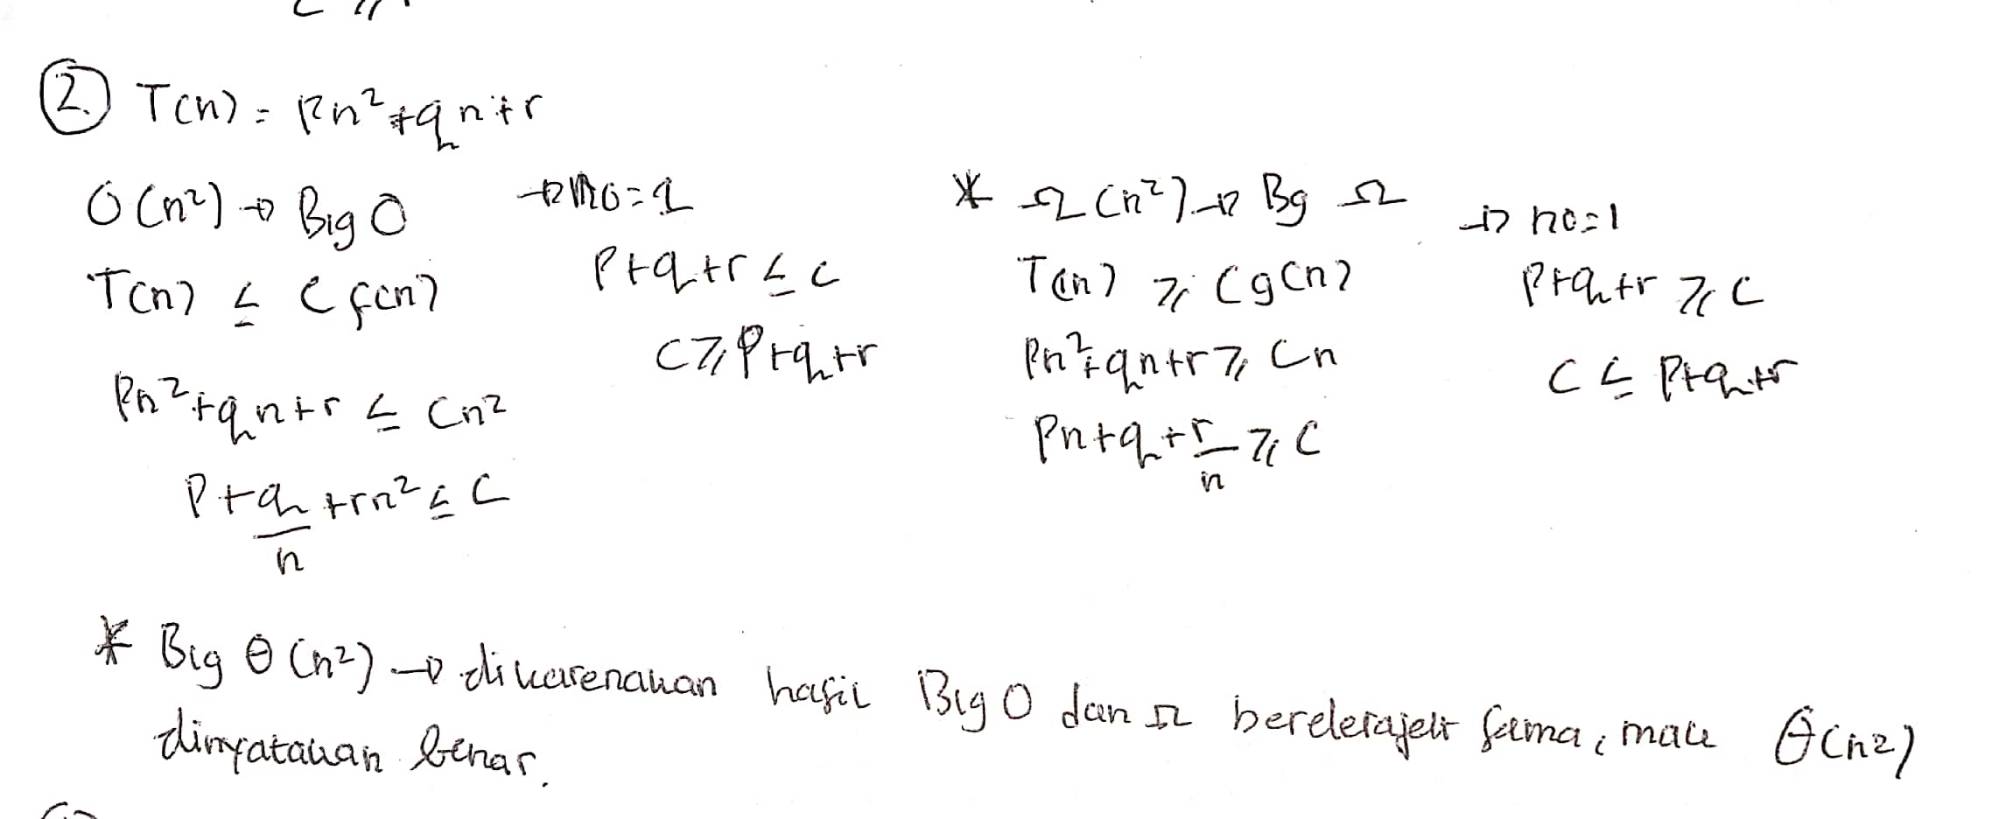 2. T(n) = Pn² + qn + r
O(n²) → Big O
T(n) ≤ C f(n)
Pn² + qn + r ≤ Cn²
P + q/n + rn² ≤ C
→ n0 = 1
P + q + r ≤ c
C ≥ P + q + r
* Ω(n²) → Bg Ω
T(n) ≥ C g(n)
Pn² + qn + r ≥ Cn
Pn + q + r/n ≥ C
→ n0 = 1
P + q + r ≥ C
C ≤ P + q + r
* Big Θ(n²) → dikarenakan hasil Big O dan Ω berderajat sama, maka Θ(n²)
dinyatakan benar.